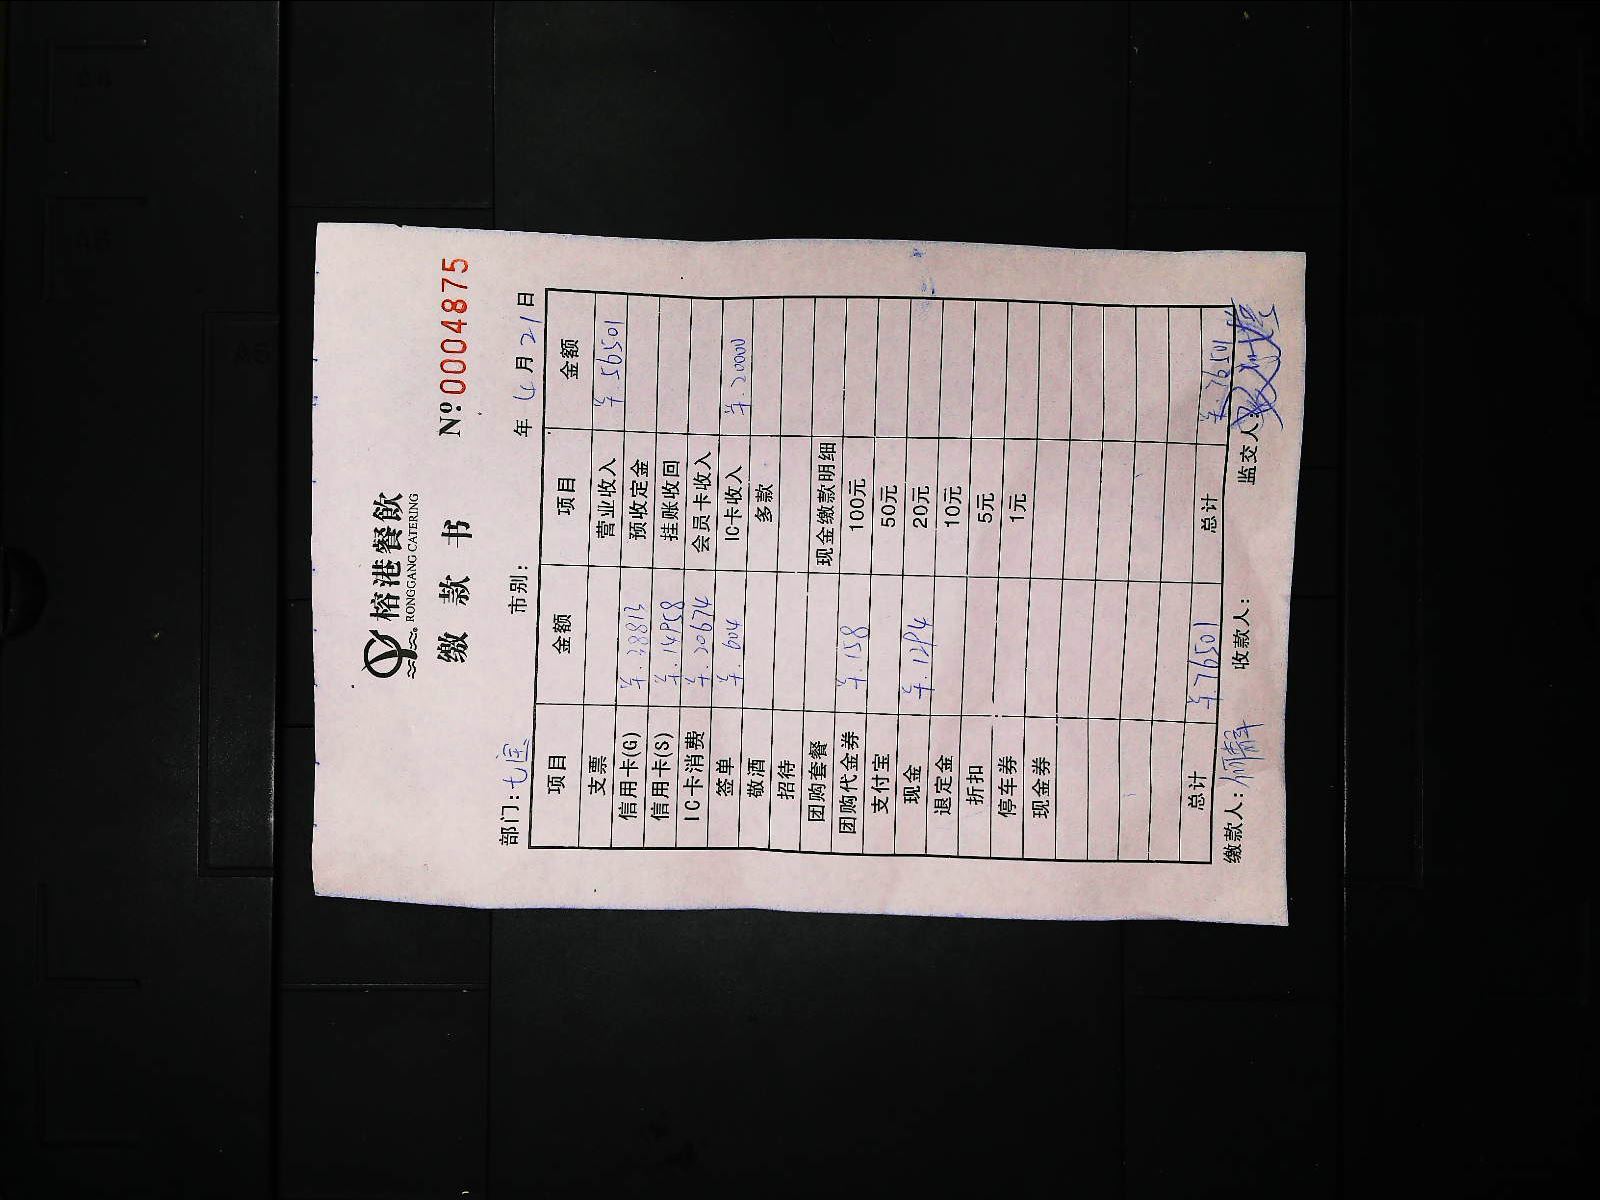 榕港餐飲
RONGGANG CATERING
缴 款 书 Nº:0004875
部门:七宝 市别: 年 4 月 21 日
项目 金额 项目 金额
支票 营业收入 ¥.56501
信用卡(G) ¥.38813 预收定金
信用卡(S) ¥.14958 挂账收回
IC卡消费 ¥.20674 会员卡收入
签单 ¥.604 IC卡收入 ¥.20000
敬酒 多款
招待
团购套餐 现金缴款明细
团购代金券 ¥.158 100元
支付宝 50元
现金 ¥.1294 20元
退定金 10元
折扣 5元
停车券 1元
现金券
总计 ¥.76501 总计 ¥.76501
缴款人:何静 收款人: 监交人: